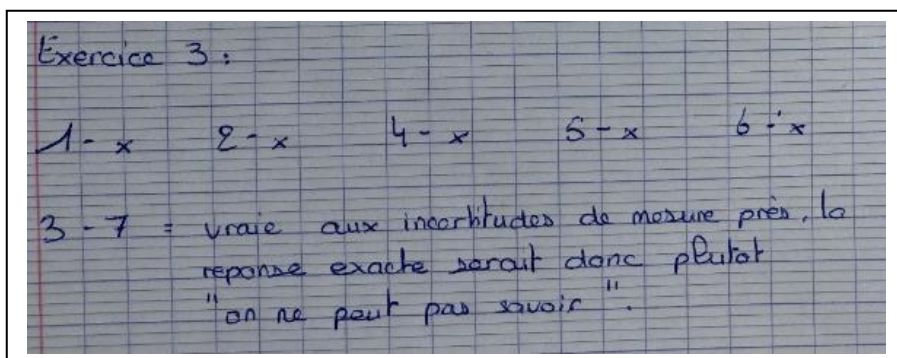 Exercice 3 :
1 - x 2 - x 4 - x 5 - x 6 - x
3 - 7 = vraie aux incertitudes de mesure près. la
reponse exacte serait donc plutot
"on ne peut pas savoir".